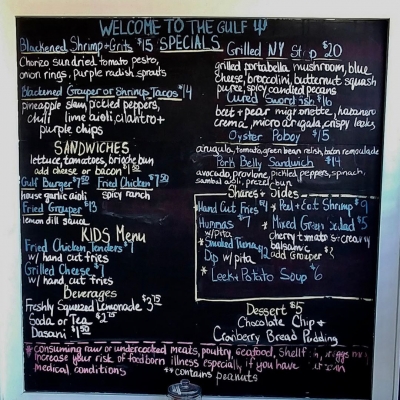 WELCOME TO THE GULF
SPECIALS
Blackened Shrimp + Grits $15
Chorizo sundried tomato pesto,
onion rings, purple radish sprouts
Blackened Grouper or Shrimp Tacos $14
pineapple slaw, pickled peppers,
chili lime aioli, cilantro +
purple chips
SANDWICHES
lettuce, tomatoes, brioche bun
add cheese or bacon $1.50
Gulf Burger $7.50 Fried Chicken $7.50
house garlic aioli spicy ranch
Fried Grouper $13
lemon dill sauce
KIDS Menu
Fried Chicken Tenders $7
w/ hand cut fries
Grilled Cheese $7
w/ hand cut fries
Beverages
Freshly Squeezed Lemonade $3.75
Soda or Tea $2.75
Dasani $1.50
Grilled NY Strip $20
grilled portabella mushroom, blue
cheese, broccolini, butternut squash
puree, spicy candied pecans
Cured Swordfish $16
beet + pear mignonette, habanero
crema, micro arugala crispy leeks
Oyster Poboy $15
arugula, tomato, green bean relish, bacon remoulade
Pork Belly Sandwich $14
avocado, provolone, pickled peppers, spinach,
sambal aioli, pretzel bun
Shares + Sides
Hand Cut Fries
* Peel + Eat Shrimp $9
Hummas $7
w/ Pita
* Mixed Green Salad $5
cherry tomato
balsamic
add Grouper
* Smoked Tuna $12
Dip w/ pita
* Leek + Potato Soup $6
Dessert $5
Chocolate Chip +
Cranberry Bread Pudding
* consuming raw or undercooked meats, poultry, seafood,
increase your risk of foodborn illness especially if you have
medical conditions
** contains peanuts